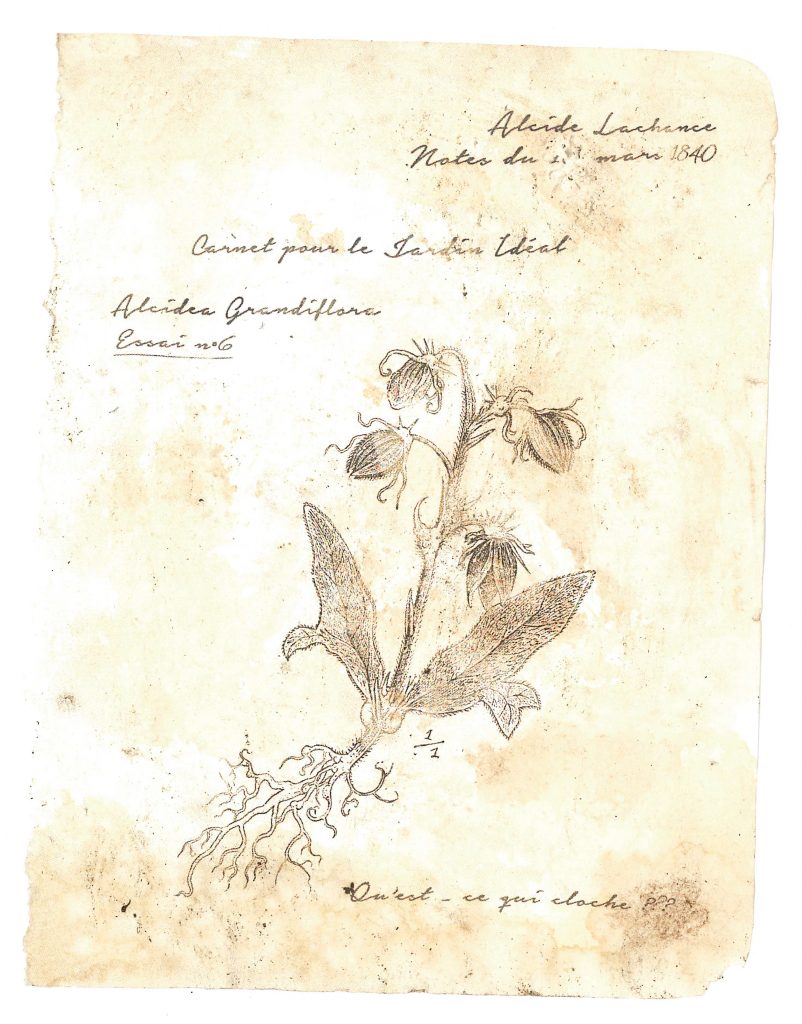 Alcide Lachance
Notes du mars 1840
Carnet pour le Jardin Idéal
Alcidea Grandiflora
Essai n°6
1
1
Qu'est-ce qui cloche ???